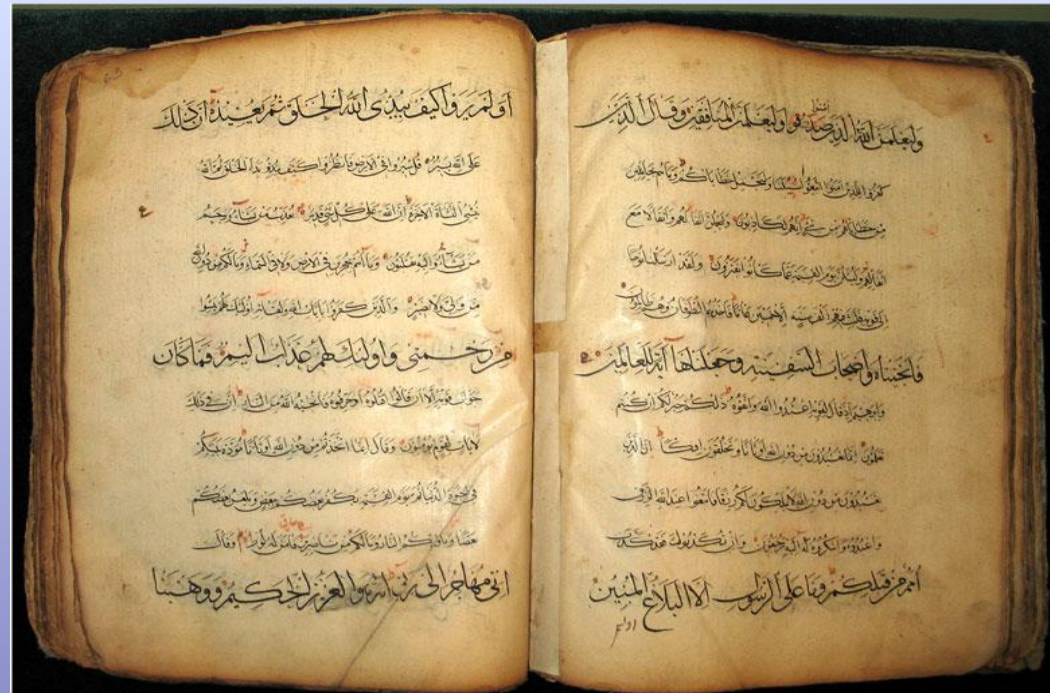 امنوا
وليعلمن الله الذين صدقوا وليعلمن المنافقين وقال الذين
كفروا للذين امنوا اتبعوا سبيلنا ولنحمل خطاياكم وما هم بحاملين
من خطاياهم من شئ انهم لكاذبون وليحملن اثقالهم واثقالا مع
اثقالهم وليسئلن يوم القيمة عما كانوا يفترون ولقد ارسلنا نوحا
الى قومه فلبث فيهم الف سنة الا خمسين عاما فاخذهم الطوفان وهم ظالمون
فانجيناه واصحاب السفينة وجعلناها آية للعالمين
وابرهيم اذ قال لقومه اعبدوا الله واتقوه ذلكم خير لكم ان كنتم
تعلمون انما تعبدون من دون الله اوثانا وتخلقون افكا ان الذين
تعبدون من دون الله لا يملكون لكم رزقا فابتغوا عند الله الرزق
واعبدوه واشكروا له اليه ترجعون وان تكذبوا فقد كذب
امم من قبلكم وما على الرسول الا البلاغ المبين
اولم
اولم يروا كيف يبدئ الله الخلق ثم يعيده ان ذلك
على الله يسير قل سيروا في الارض فانظروا كيف بدا الخلق ثم الله
ينشئ النشاة الاخرة ان الله على كل شئ قدير يعذب من يشاء ويرحم
من يشاء واليه تقلبون وما انتم بمعجزين في الارض ولا في السماء وما لكم من دون الله
من ولي ولا نصير والذين كفروا بايات الله ولقائه اولئك يئسوا
من رحمتي واولئك لهم عذاب اليم فما كان
جواب قومه الا ان قالوا اقتلوه او حرقوه فانجيه الله من النار ان في ذلك
لايات لقوم يؤمنون وقال انما اتخذتم من دون الله اوثانا مودة بينكم
في الحيوة الدنيا ثم يوم القيمة يكفر بعضكم ببعض ويلعن بعضكم
بعضا وماويكم النار وما لكم من ناصرين فامن له لوط وقال
انى مهاجر الى ربى انه هو العزيز الحكيم ووهبنا